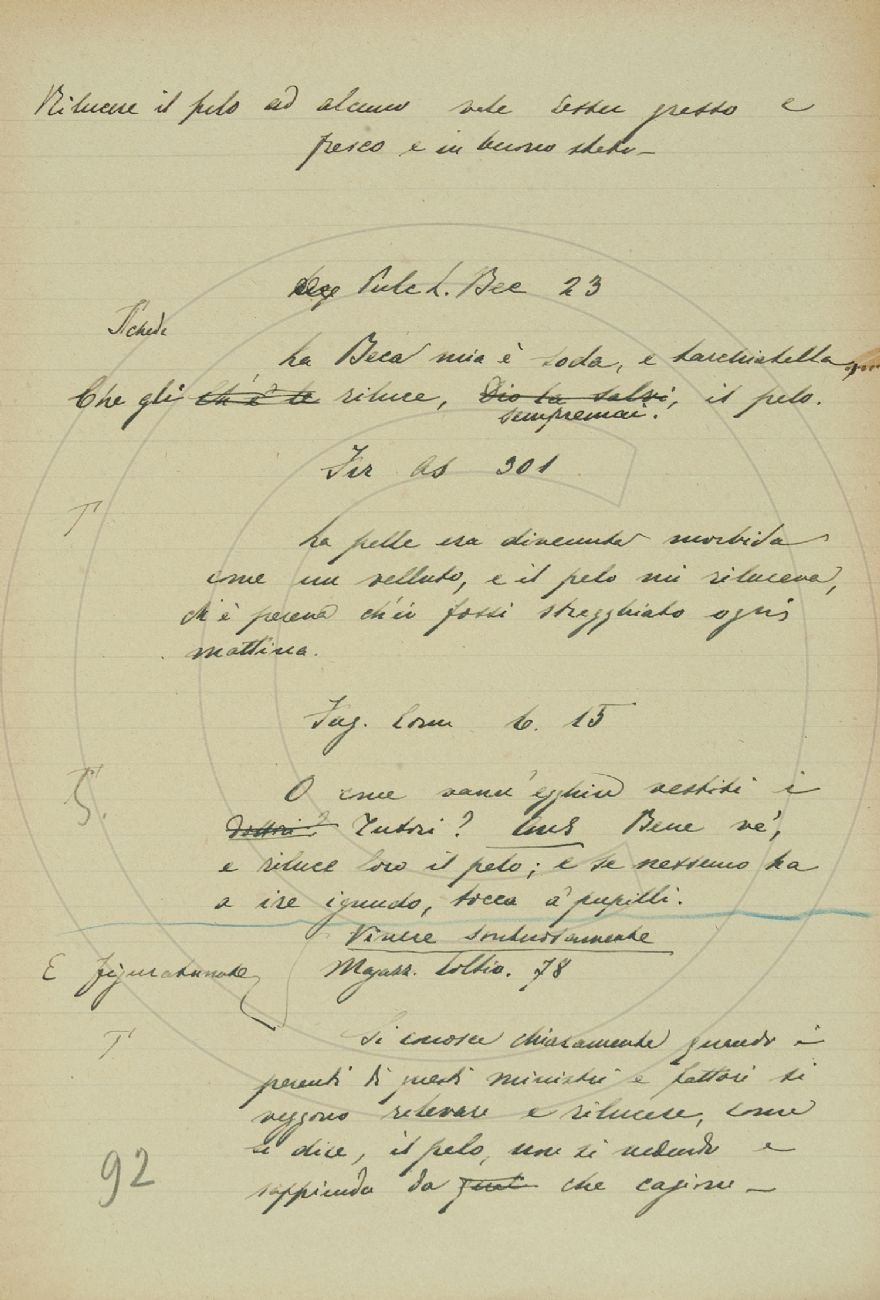 Rilucere il pelo ad alcuno vale Esser grasso e
fresco e in buono stato —
Pulc L. Bec 23
T schede
La Beca mia è soda, e tarchiatella
Che gli ~~ch'è le~~ riluce, ~~Dio la salvi~~, il pelo.
sempremai.
Fir As 301
T
La pelle era divenuta morbida
come un velluto, e il pelo mi riluceva,
ch'è pareva ch'io fossi stregghiato ogni
mattina.
Fag. Com 6. 15
T
S.
O come vann'eglino vestiti i
~~dottori?~~ Tutori? Bene ve',
e riluce loro il pelo; e se nessuno ha
a ire ignudo, tocca a' pupilli.
Vivere sontuosamente
E figuratamente
Magazz. Coltiv. 78
T
Si conosce chiaramente quando i
parenti di questi ministri e fattori si
veggono rilevare e rilucere, come
si dice, il pelo, non si vedendo e
sappiendo da che cagione —
92